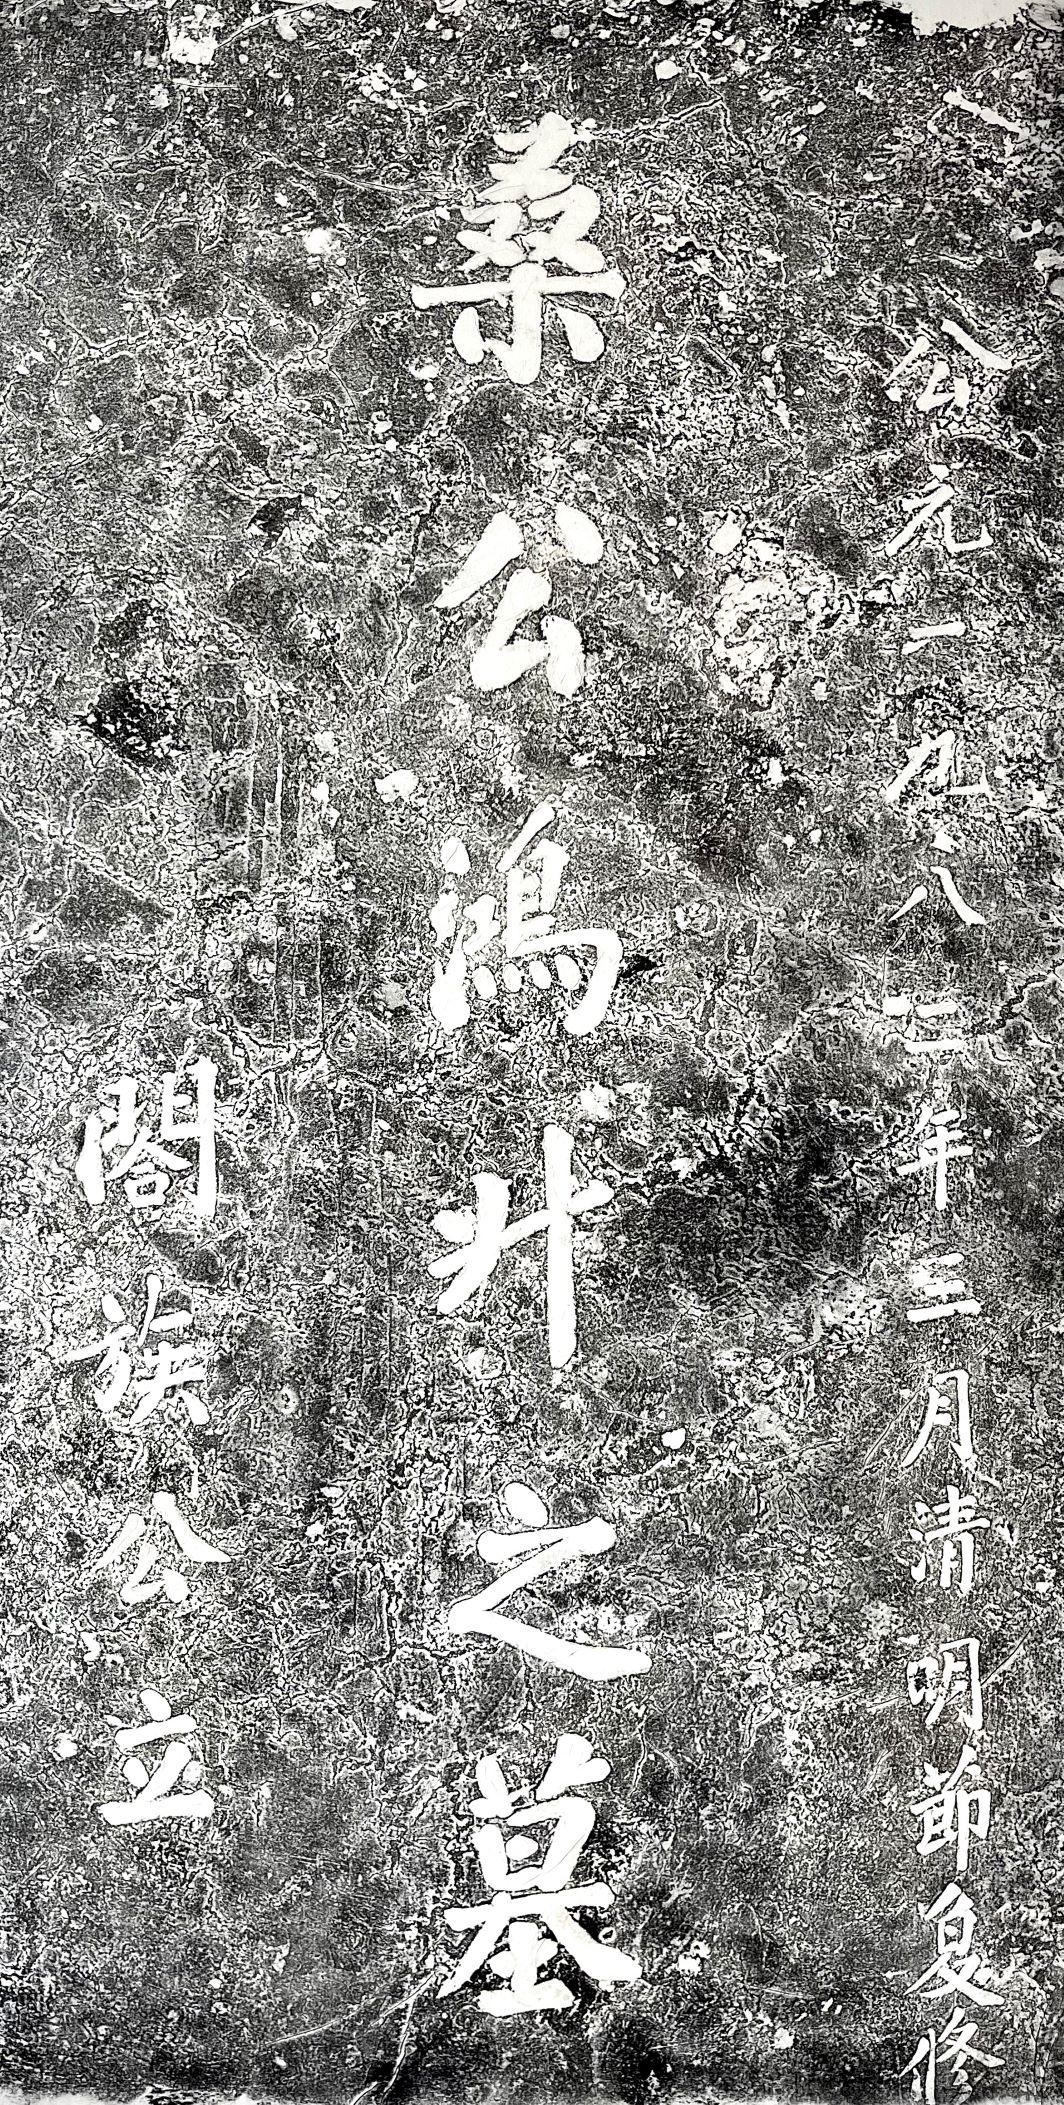 公元一九八二年三月清明節复修
桑公鴻升之墓
閤族公立